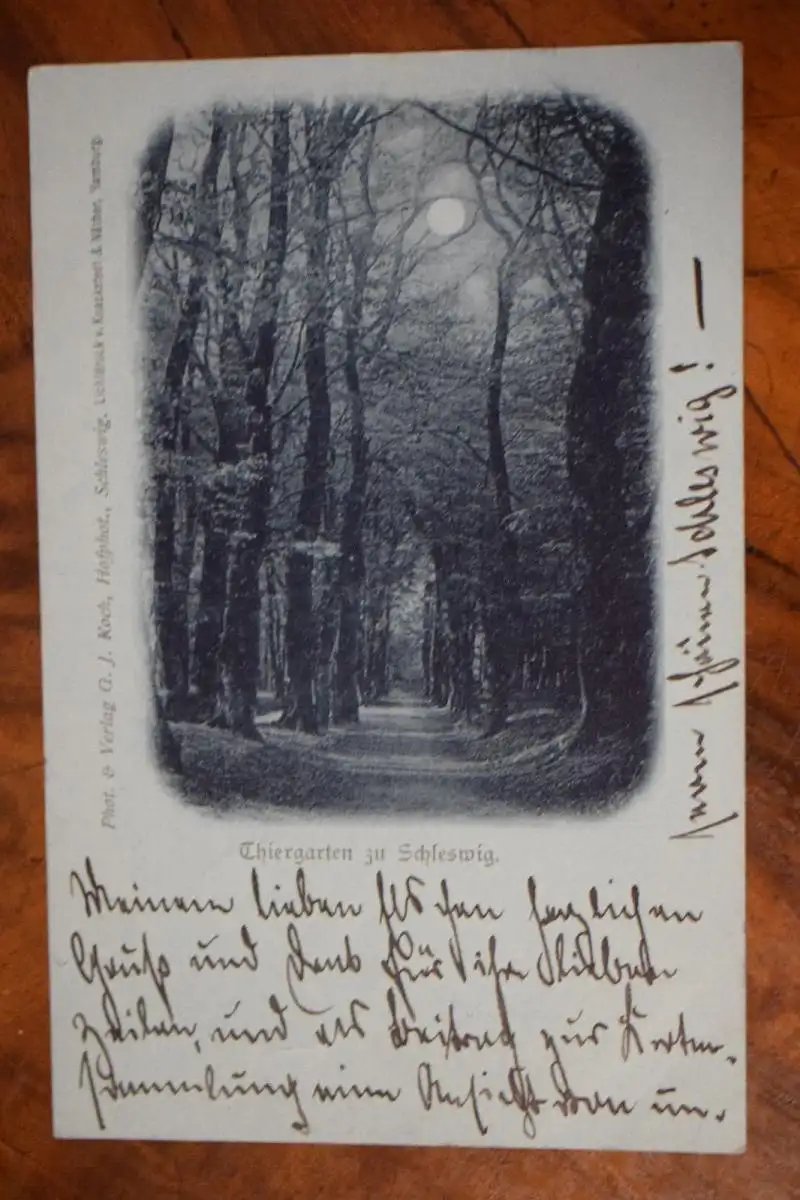 Phot. & Verlag G. J. Koch, Hofphot., Schleswig. Lichtdruck v. Knackstedt & Näther, Hamburg.
Thiergarten zu Schleswig.
Meinem lieben Elschen herzlichen
Gruß und Dank für ihre lieben
Zeilen, und als Beitrag zur Karten-
sammlung eine Ansicht von un-
serm schönen Schleswig! —